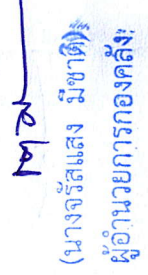 (นางจรัสแสง มีชาติ)
ผู้อำนวยการกองคลัง